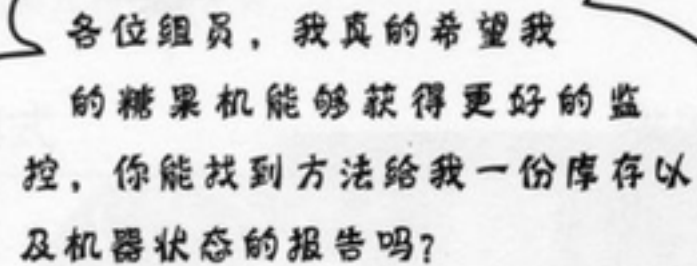 各位组员，我真的希望我
的糖果机能够获得更好的监
控，你能找到方法给我一份库存以
及机器状态的报告吗？